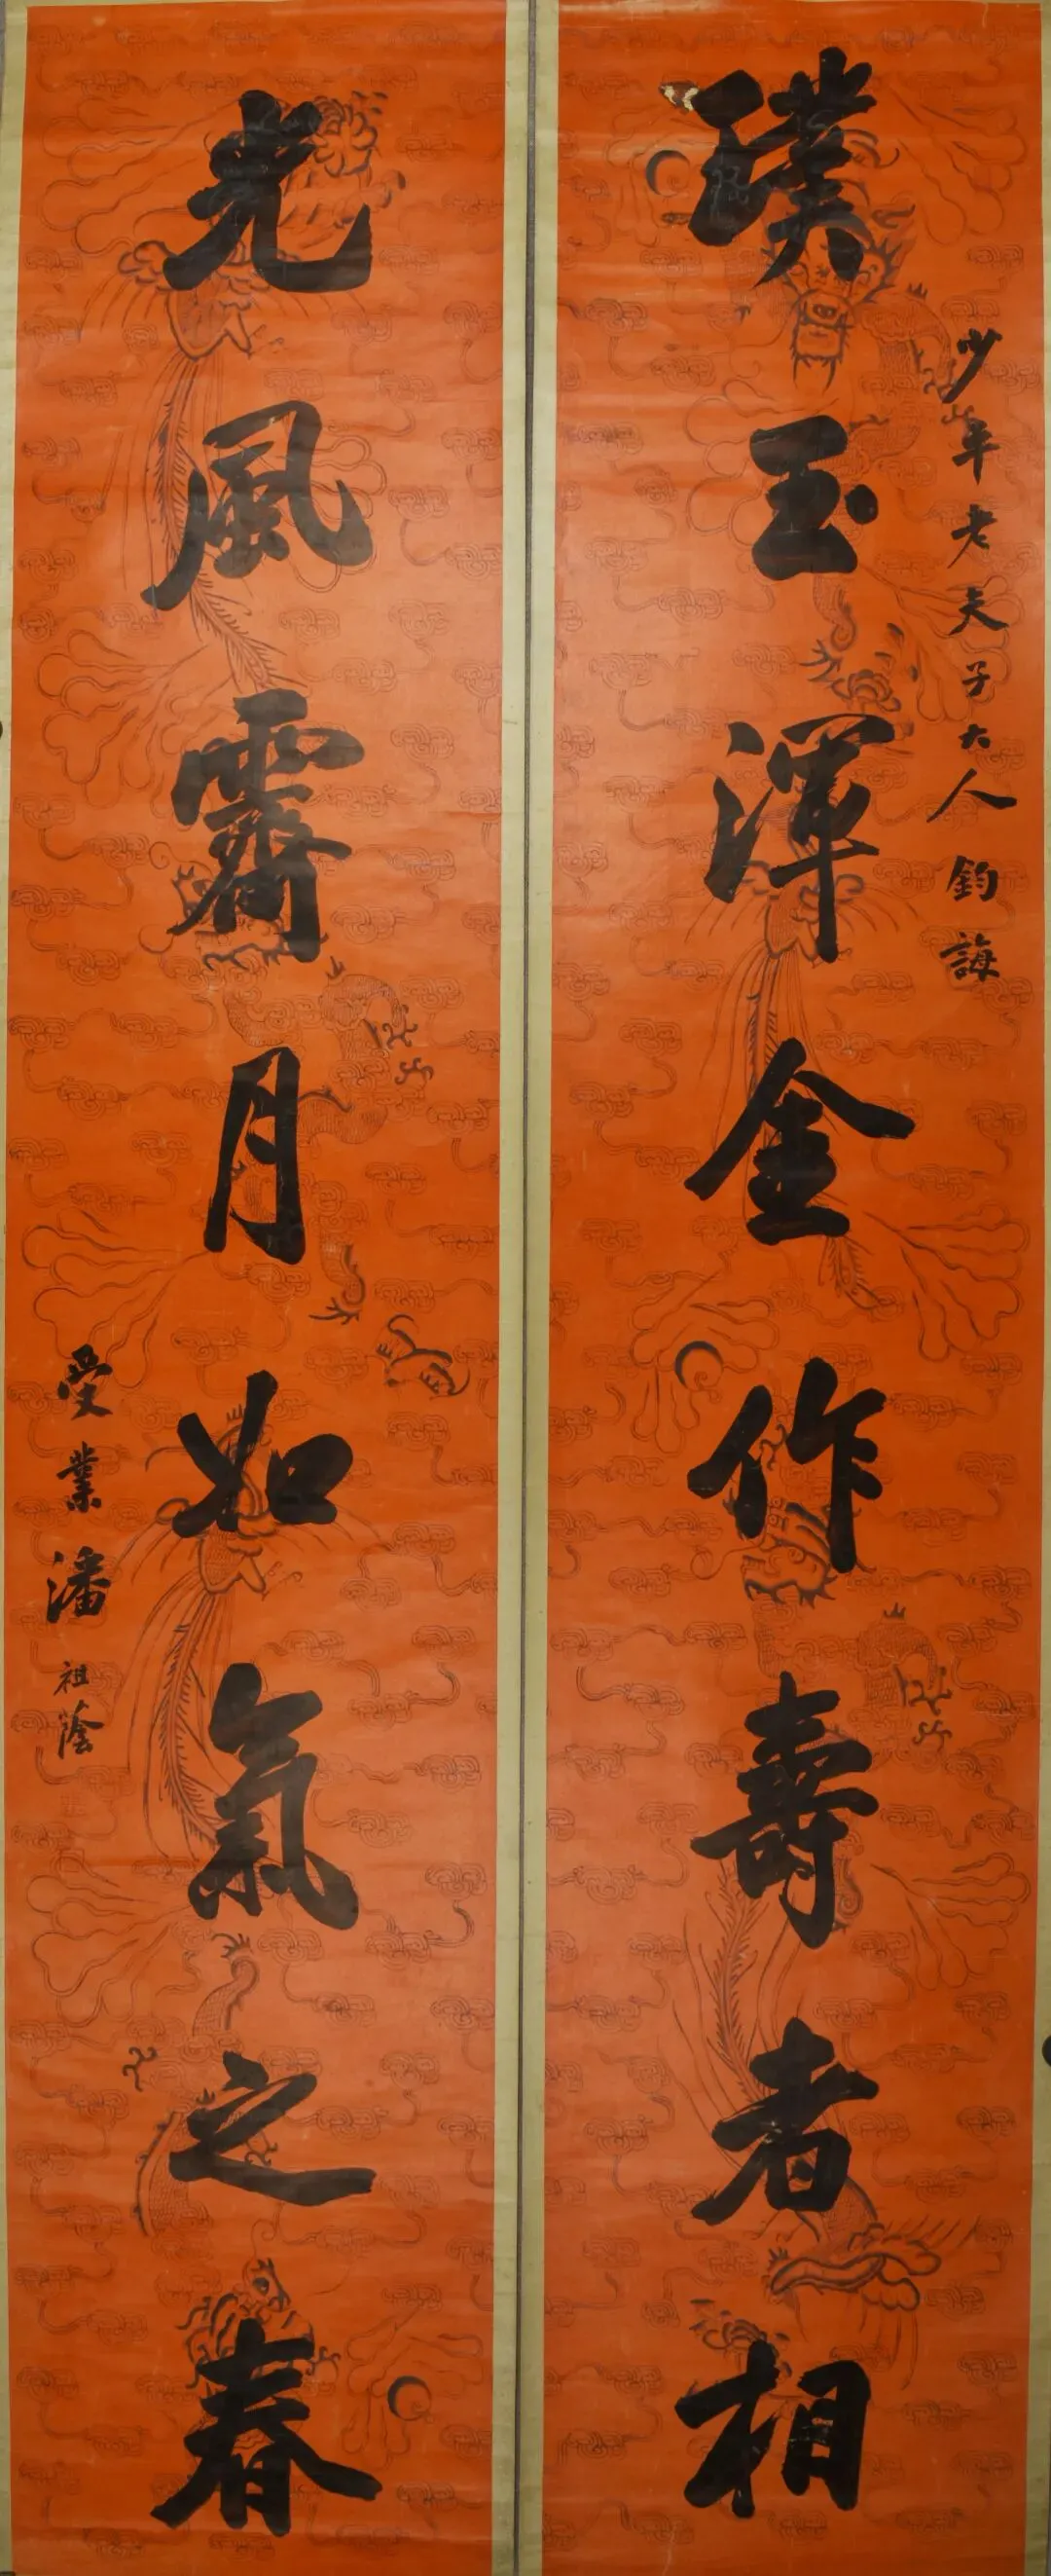 少平老夫子大人鈞誨
璞玉渾金作壽者相
光風霽月如氣之春
受業潘祖蔭